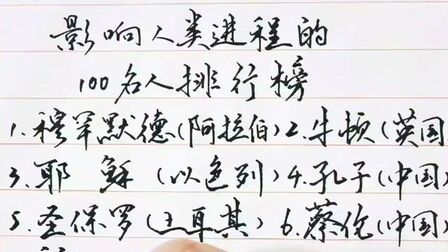 影响人类进程的
100名人排行榜
1.穆罕默德(阿拉伯)2.牛顿(英国
3.耶稣(以色列)4.孔子(中国)
5.圣保罗(土耳其)6.蔡伦(中国)